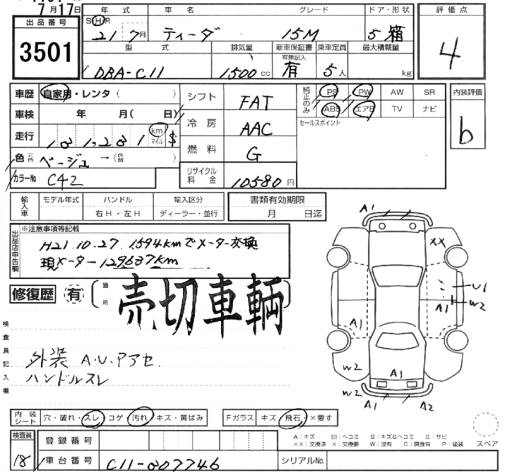 7月17日
出品番号 3501
年式 SHR 21 7月
車名 ティーダ
グレード 15M
ドア・形状 5 箱
評価点 4
型式 DBA-C11
排気量 1500cc
新車保証書 有無記入 有
乗車定員 5人
最大積載量 kg
車歴 自家用・レンタ( )
車検 年 月( 日)
走行 km マイル $
色 ベージュ → ( )
カラーNo C42
シフト FAT
冷房 AAC
燃料 G
リサイクル料金 10580円
純正のみ PS PW AW SR
ABS エアB TV ナビ
セールスポイント
内装評価 b
輸入車 モデル年式 ハンドル 右H・左H 輸入区分 ディーラー・並行
書類有効期限 月 日迄
出品店申告欄 ※注意事項等記載
H21.10.27. 1594kmでメーター交換
現メーター 129687km
修復歴 有 箇所
売切車輌
検査員記入欄
外装 A.U.アアセ.
ハンドルスレ
A1
XX
U1
W2
A1
A1
A1
W2
W2
A1
A2
内装シート 穴・破れ・スレ コゲ 汚れ キズ・黄ばみ
Fガラス キズ 飛石 ×要す
A:キズ U:凹 S:サビ
スペア
検査員 18
登録番号
車台番号 C11-207746
シリアルNo.